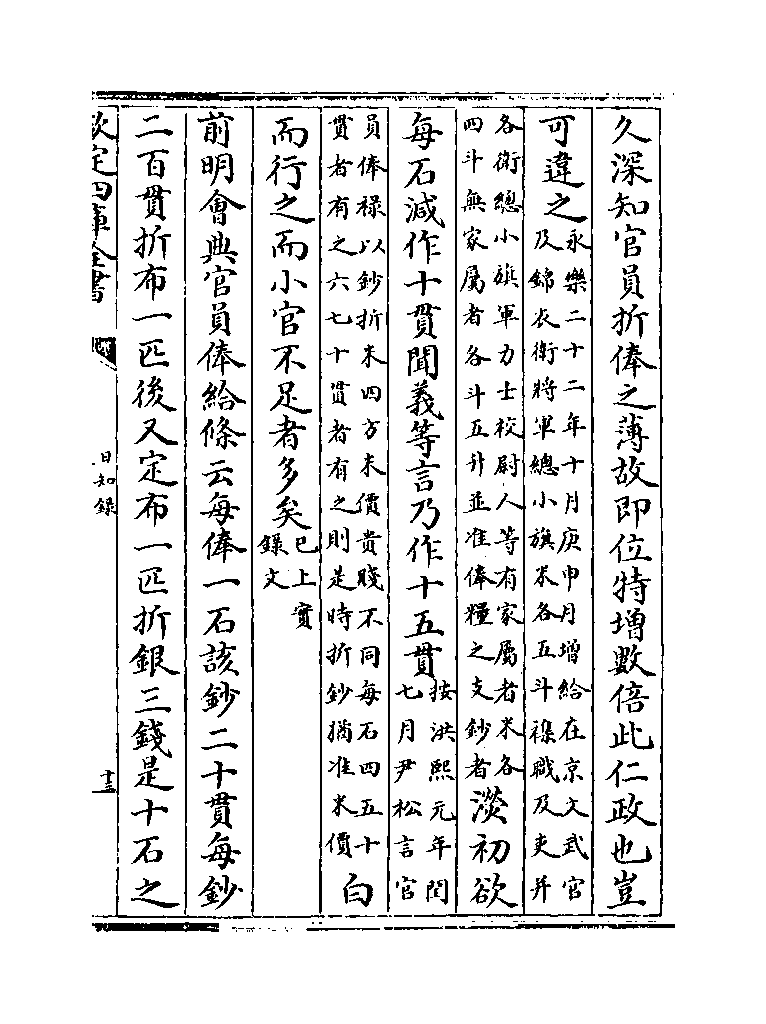 久深知官員折俸之薄故即位特增數倍此仁政也豈
可違之永樂二十二年十月庚申月增給在京文武官
及錦衣衛將軍總小旗米各五斗襍職及吏并
各衛總小旗軍力士校尉人等有家屬者米各
四斗無家屬者各斗五升並准俸糧之支鈔者淡初欲
每石減作十貫聞義等言乃作十五貫按洪熙元年閏
七月尹松言官
員俸祿以鈔折米四方米價貴賤不同每石四五十
貫者有之六七十貫者有之則是時折鈔猶准米價白
而行之而小官不足者多矣已上實
錄文
前明會典官員俸給條云每俸一石該鈔二十貫每鈔
二百貫折布一匹後又定布一匹折銀三錢是十石之
欽定四庫全書
日知錄
十三